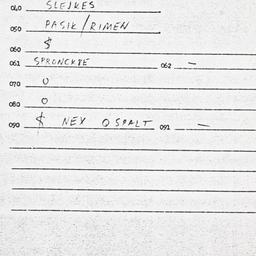 040 SLEJKES
050 PASIK/RIMEN
060 $
061 SPRONCKTE 062 —
070 0
080 0
090 $ NEX OSPALT 091 —